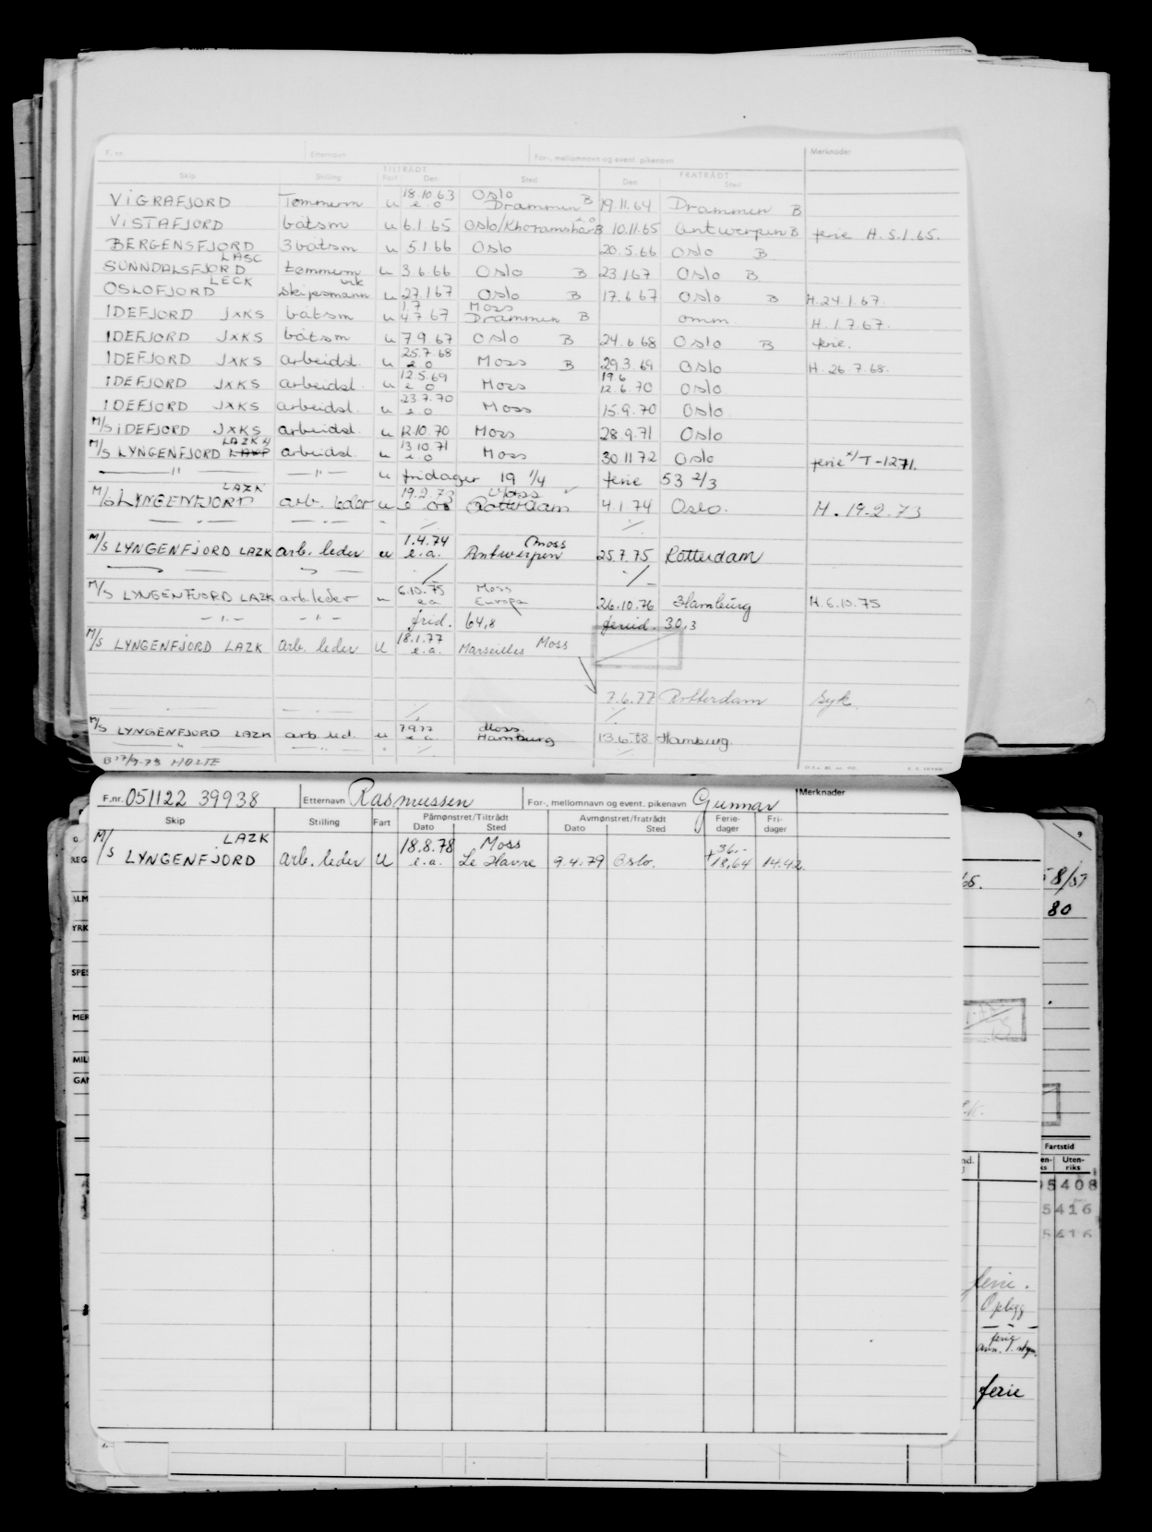 F. nr. Etternavn For-, mellomnavn og event. pikenavn Merknader
Skip Stilling Fart TILTRÅDT Den Sted FRATRÅDT Den Sted
18.10.63 Oslo
VIGRAFJORD Tømmerm u e o Drammen B 19.11.64 Drammen B
VISTAFJORD båtsm u 6.1.65 Oslo/Khoramshar B 10.11.65 Antwerpen B ferie H. 5.1.65.
BERGENSFJORD 3 båtsm u 5.1.66 Oslo 20.5.66 Oslo B
LASC
SUNNDALSFJORD tømmerm u 3.6.66 Oslo B 23.1.67 Oslo B
LECK
OSLOFJORD skipsmann u 27.1.67 Oslo B 17.6.67 Oslo B H.24.1.67.
1.7 Moss
IDEFJORD JXKS båtsm u 4.7.67 Drammen B omm. H. 1.7.67.
IDEFJORD JXKS båtsm u 7.9.67 Oslo B 24.6.68 Oslo B ferie.
25.7.68
IDEFJORD JXKS arbeidsl. u e o Moss B 29.3.69 Oslo H. 26.7.68.
12.5.69 19 6
IDEFJORD JXKS arbeidsl. u e o Moss 12.6.70 Oslo
23.7.70
IDEFJORD JXKS arbeidsl. u e o Moss 15.9.70 Oslo
M/S IDEFJORD JXKS arbeidsl. u 12.10.70 Moss 28.9.71 Oslo
LAZK 4 13.10.71
M/S LYNGENFJORD arbeidsl. u e o Moss 30.11.72 Oslo ferie T-1271.
— " — — " — u fridager 19 1/4 ferie 53 2/3
LAZK 19.2.73 Moss
M/S LYNGENFJORD arb. leder u e o Rotterdam 4.1.74 Oslo. H. 19.2.73
1.4.74 Moss
M/S LYNGENFJORD LAZK arb. leder u e.a. Antwerpen 25.7.75 Rotterdam
6.10.75 Moss
M/S LYNGENFJORD LAZK arb.leder u e.a Europa 26.10.76 Hamburg H. 6.10.75
— " — — " — frid. 64,8 feried. 30,3
18.1.77
M/S LYNGENFJORD LAZK arb. leder u e.a. Marseilles Moss
7.6.77 Rotterdam Syk.
7.9.77 Moss
M/S LYNGENFJORD LAZK arb. led. u e.a. Hamburg 13.6.78 Hamburg.
B 17/9-73 HOLTE
F.nr. 051122 39938 Etternavn Rasmussen For-, mellomnavn og event. pikenavn Gunnar Merknader
Skip Stilling Fart Påmønstret/Tiltrådt Dato Sted Avmønstret/fratrådt Dato Sted Ferie-dager Fri-dager
LAZK 18.8.78 Moss 36.-
M/S LYNGENFJORD arb. leder U e.a. Le Havre 9.4.79 Oslo. +18,64 14.42.
8/57
80
Fartstid
Uten-riks
5408
5416
5416
ferie.
Opplegg
ferie
ferie